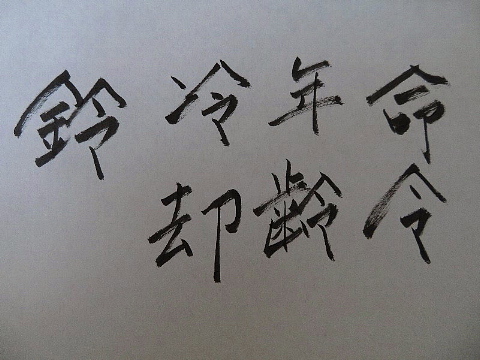 命令
年齢
冷却
鈴